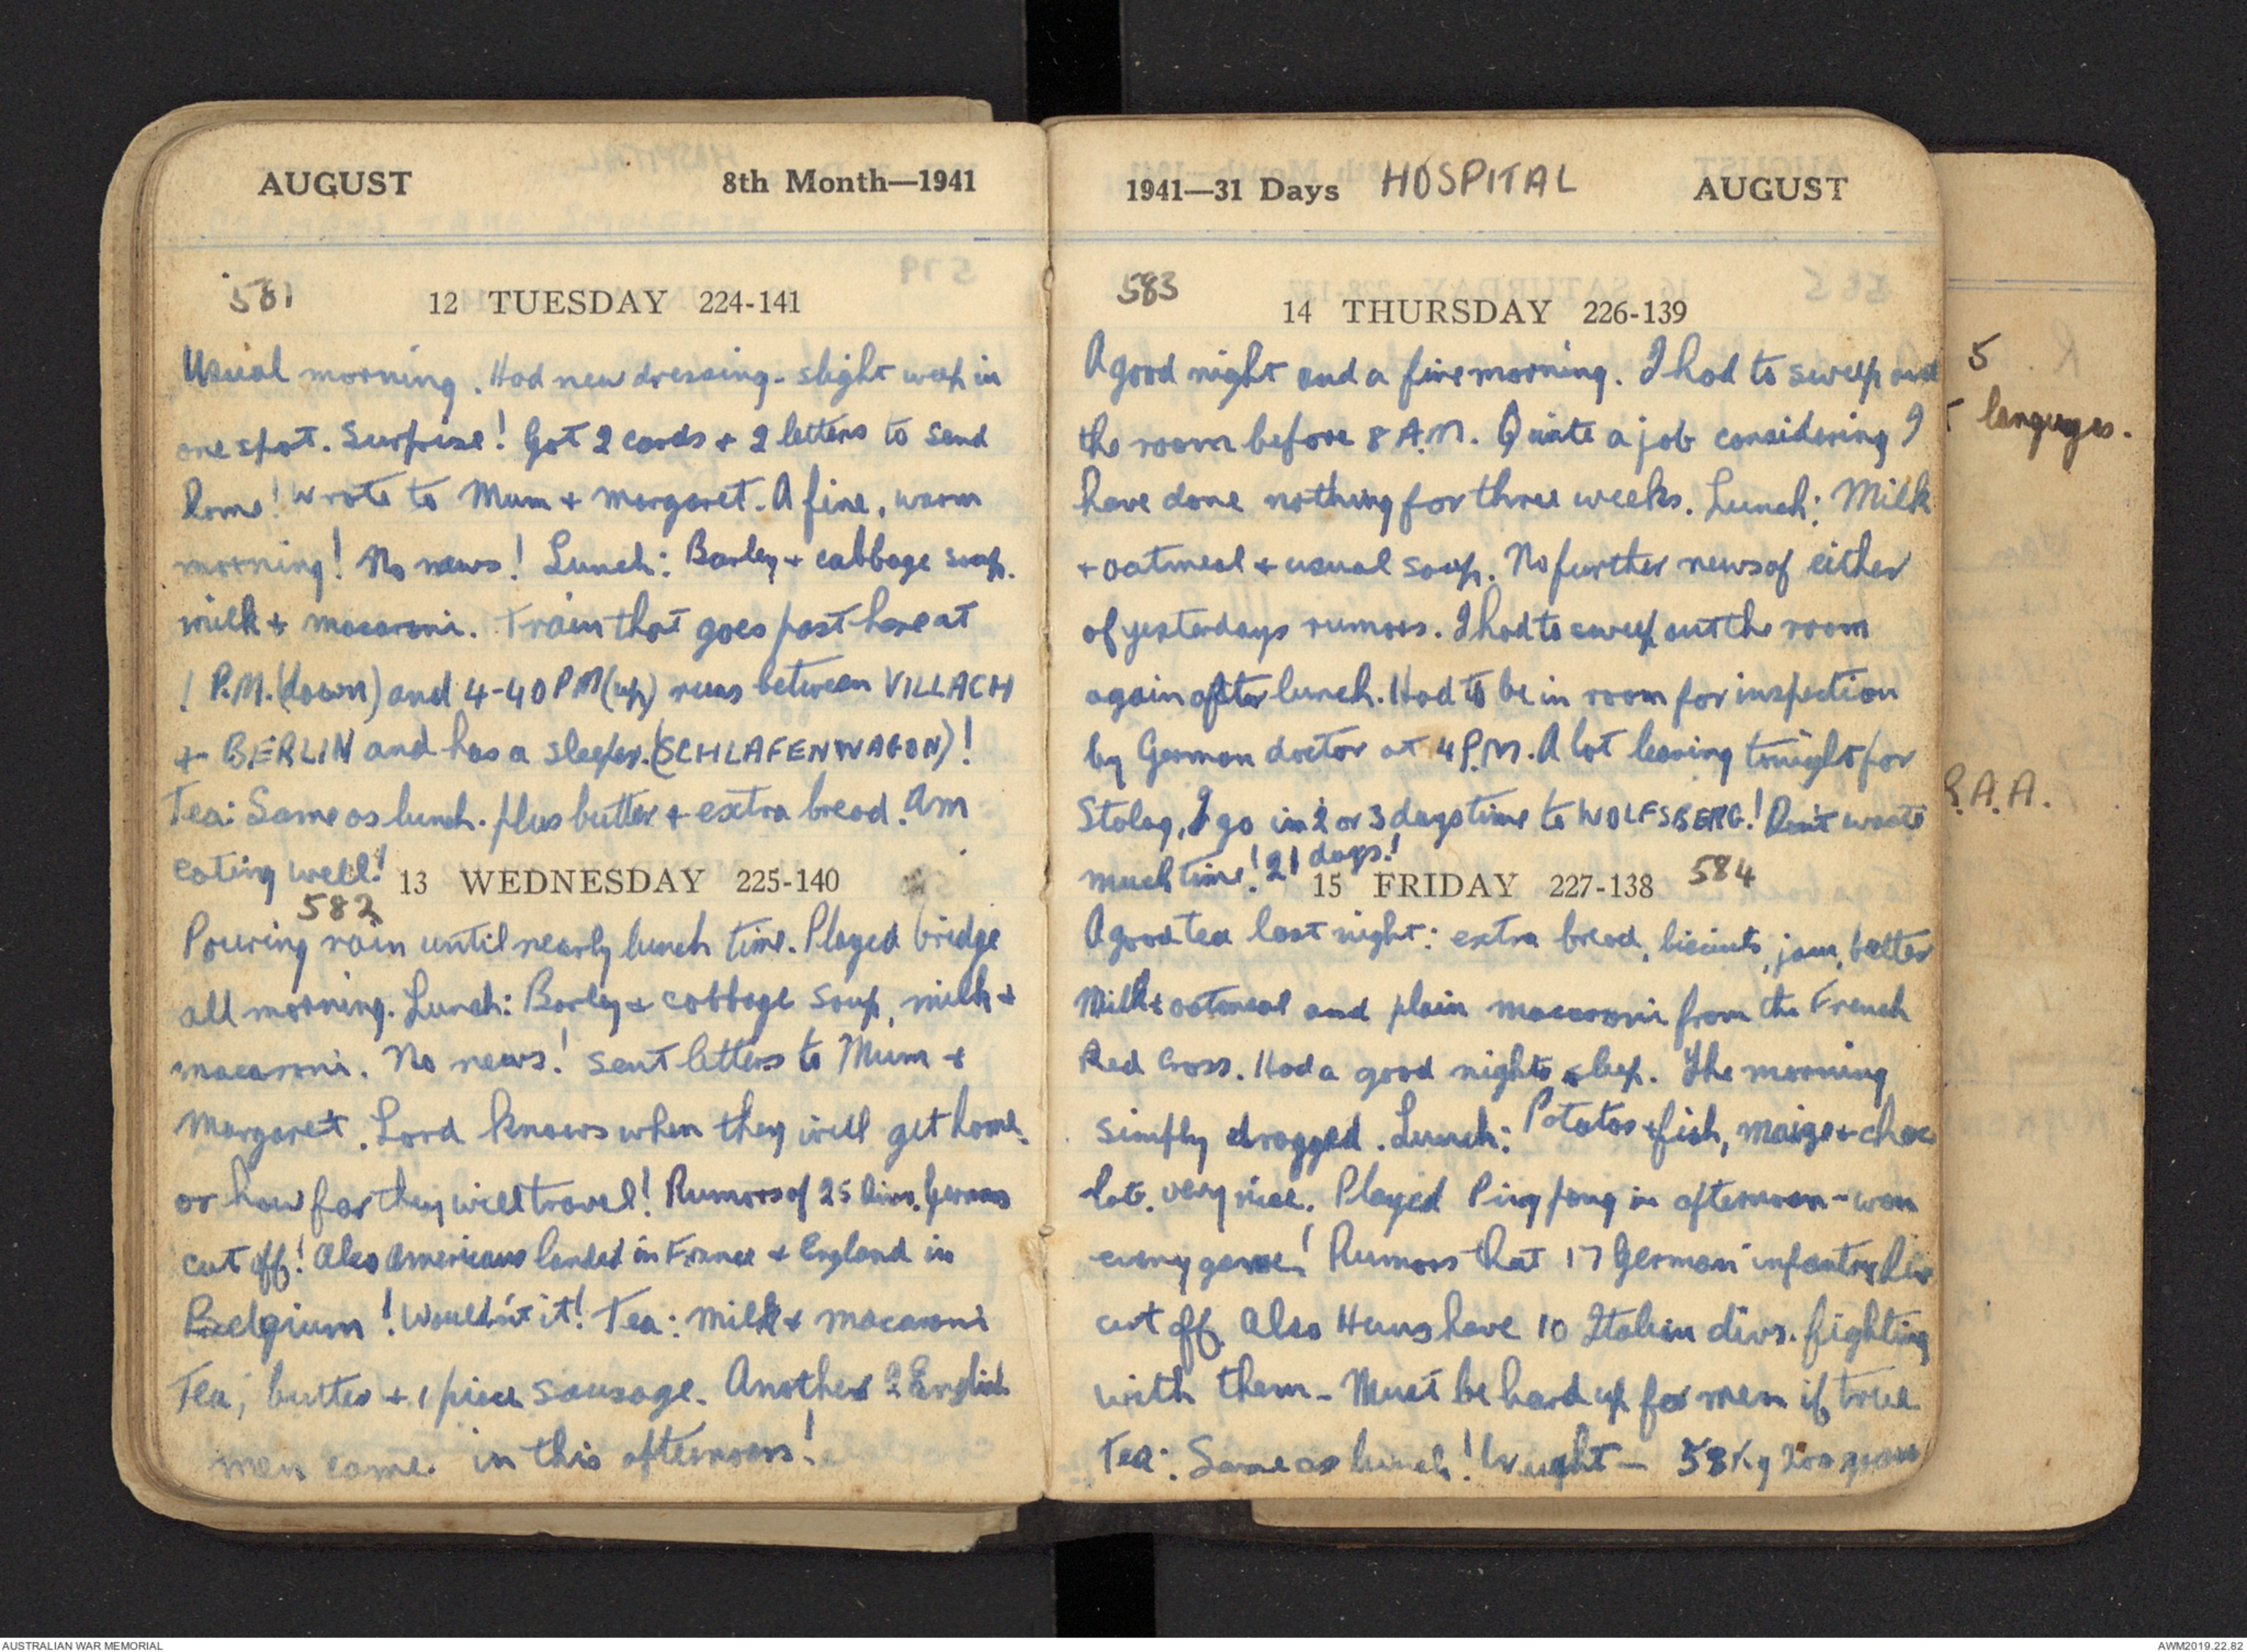 AUGUST 8th Month—1941
581
12 TUESDAY 224-141
Usual morning. Had new dressing - slight weep in
one spot. Surprise! Got 2 cards + 2 letters to send
home! Wrote to Mum + Margaret. A fine, warm
morning! No news! Lunch: Barley + cabbage soup.
milk + macaroni. Train that goes past here at
1 P.M. (down) and 4-40 PM (up) runs between VILLACH
+ BERLIN and has a sleeper. (SCHLAFENWAGON)!
Tea: Same as lunch. plus butter + extra bread. Am
eating well!
13 WEDNESDAY 225-140
582
Pouring rain until nearly lunch time. Played bridge
all morning. Lunch: Barley + cabbage soup, milk +
macaroni. No news! Sent letters to Mum +
Margaret. Lord knows when they will get home.
or how far they will travel! Rumors of 25 Divs. Germans
cut off! Also Americans landed in France + England in
Belgium! Wouldn't it! Tea: Milk + macaroni
Tea, butter + 1 piece sausage. Another 2 English
men came in this afternoon!
1941—31 Days HOSPITAL AUGUST
583
14 THURSDAY 226-139
A good night and a fine morning. I had to sweep out
the room before 8 A.M. Quite a job considering I
have done nothing for three weeks. Lunch: Milk
+ oatmeal + usual soup. No further news of either
of yesterdays rumors. I had to sweep out the room
again after lunch. Had to be in room for inspection
by German doctor at 4 P.M. A lot leaving tonight for
Stalag, I go in 2 or 3 days time to WOLFSBERG! Don't waste
much time! 21 days!
15 FRIDAY 227-138 584
A good tea last night: extra bread, biscuits, jam, butter
Milk + oatmeal and plain macaroni from the French
Red Cross. Had a good nights sleep. The morning
simply dragged. Lunch: Potatos + fish, maize + choc
late. very nice. Played Ping pong in afternoon - won
every game! Rumors that 17 German infantry div
cut off. Also Huns have 10 Italian divs. fighting
with them - Must be hard up for men if true.
Tea: Same as lunch! Weight — 58 Kg 200 gram
5
languages.
R.A.A.
AUSTRALIAN WAR MEMORIAL
AWM2019.22.82